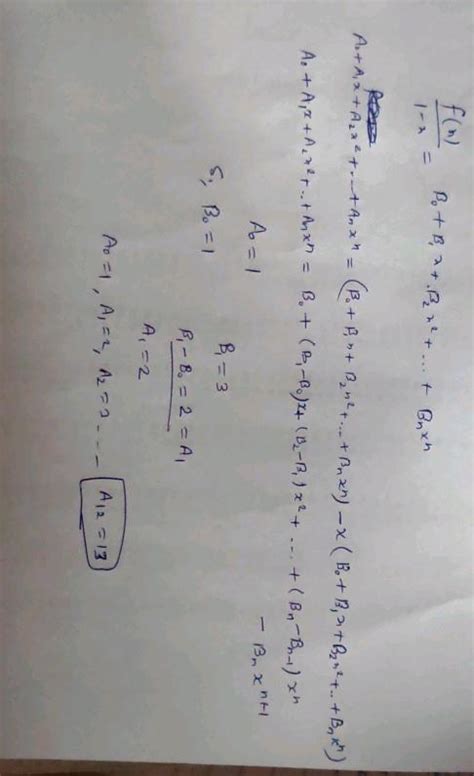 f(x)/(1-x) = B₀ + B₁x + B₂x² + ... + Bₙxⁿ
A₀ + A₁x + A₂x² + ... + Aₙxⁿ = (B₀ + B₁x + B₂x² + ... + Bₙxⁿ) - x(B₀ + B₁x + B₂x² + ... + Bₙxⁿ)
A₀ + A₁x + A₂x² + .. + Aₙxⁿ = B₀ + (B₁-B₀)x + (B₂-B₁)x² + ... + (Bₙ-Bₙ₋₁)xⁿ
- Bₙxⁿ⁺¹
A₀ = 1
S, B₀ = 1
B₁ = 3
B₁ - B₀ = 2 = A₁
A₁ = 2
A₀ = 1, A₁ = 2, A₂ = 3 ---- A₁₂ = 13